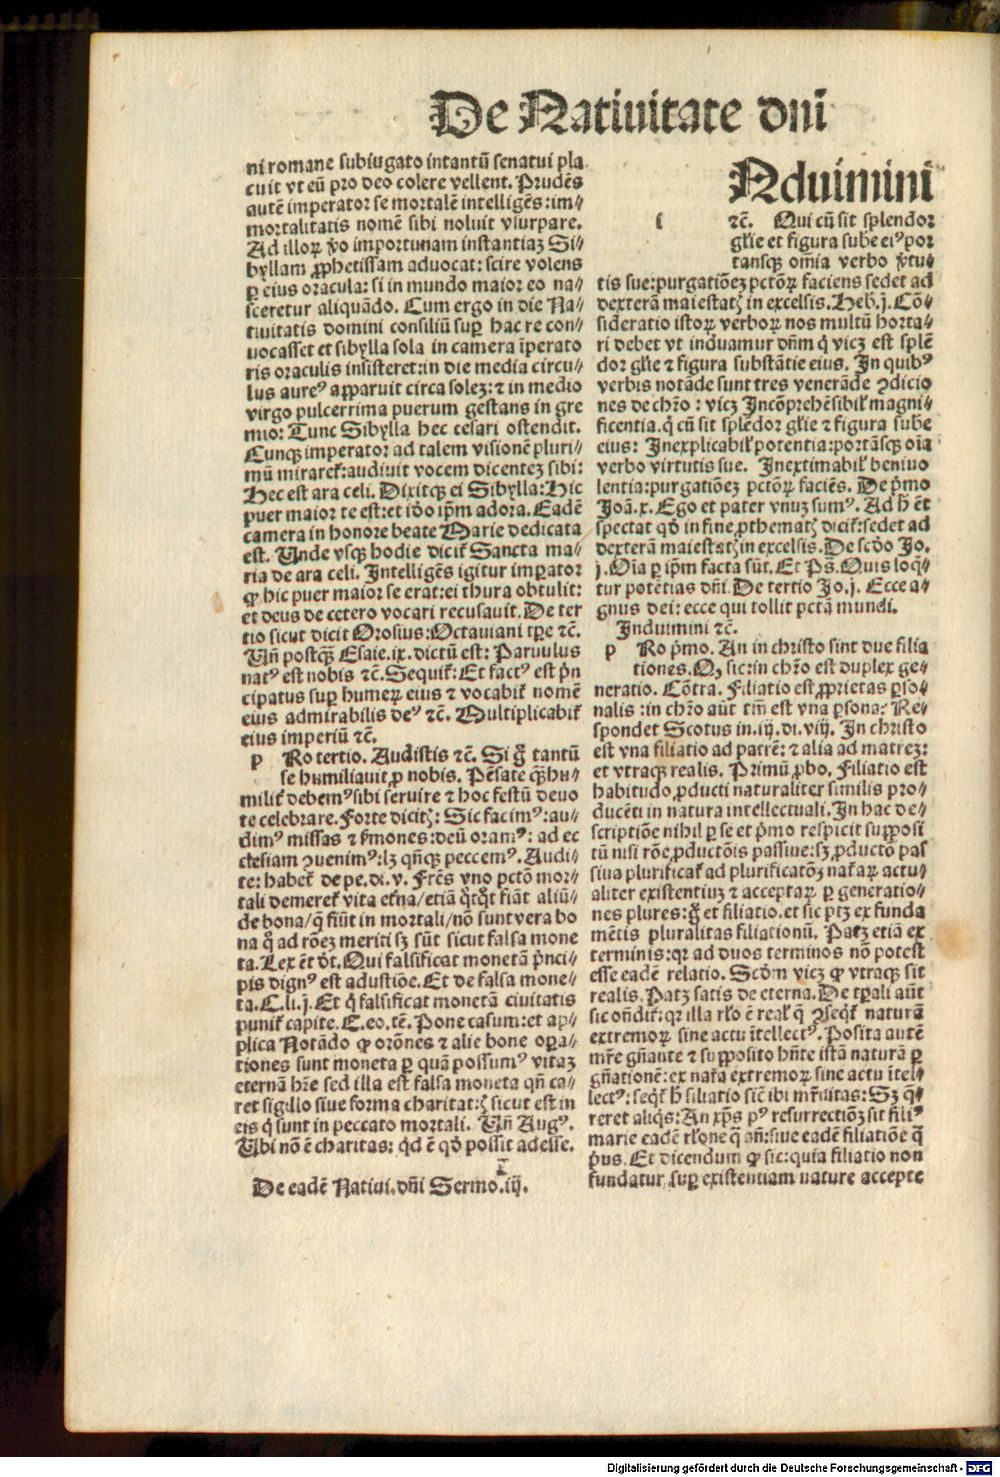 De Natiuitate dñi
ni romane subiugato intantū senatui pla
cuit vt eū pro deo colere vellent. Prudēs
autē imperator se mortalē intelligēs: im⸗
mortalitatis nomē sibi noluit vsurpare.
Ad illoꝝ v̓o importunam instantiaꝫ Si⸗
byllam ꝓphetissam aduocat: scire volens
ꝑ eius oracula: si in mundo maior eo na⸗
sceretur aliquādo. Cum ergo in die Na⸗
tiuitatis domini consiliū suꝑ hac re con⸗
uocasset et sibylla sola in camera īperato
ris oraculis insisteret: in die media circu⸗
lus aureꝰ apparuit circa soleꝫ: ⁊ in medio
virgo pulcerrima puerum gestans in gre
mio: Tunc Sibylla hec cesari ostendit.
Cunqꝫ imperator ad talem visionē pluri⸗
mū mirareť: audiuit vocem dicenteꝫ sibi:
Hec est ara celi. Dixitqꝫ ei Sibylla: Hic
puer maior te est: et iō̓o ip̄m adora. Eadē
camera in honore beate Marie dedicata
est. Unde vsqꝫ hodie diciť Sancta ma⸗
ria de ara celi. Intelligēs igitur imꝑator
ꝙ hic puer maior se erat: ei thura obtulit:
et deus de cetero vocari recusauit. De ter
tio sicut dicit Orosius: Octauiani tꝑe ⁊c̄.
Uñ postqꝫ̄ Esaie.ix. dictū est: Paruulus
natꝰ est nobis ⁊c̄. Sequiť: Et factꝰ est p̓n
cipatus suꝑ humeꝝ eius ⁊ vocabiť nomē
eius admirabilis deꝰ ⁊c̄. Multiplicabiť
eius imperiū ⁊c̄.
p Ro tertio. Audistis ⁊c̄. Si g̊ tantū
se humiliauit ꝓ nobis. Pēsate qꝫ̄ hu⸗
militer debemꝰ sibi seruire ⁊ hoc festū deuo
te celebrare. Forte dicitis: Sic facimꝰ: au⸗
dimꝰ missas ⁊ s̓mones: deū oramꝰ: ad ec
clesiam ꝯuenimꝰ: lꝫ qñqꝫ peccemꝰ. Audi⸗
te: habeť de pe. di. v. Fr̄es vno pctō mor⸗
tali demereť vita et̓na / etiā q̊tq̊t fiāt aliū⸗
de bona / q̄ fiūt in mortali / nō sunt vera bo
na q̊ ad rōeꝫ meriti sꝫ sūt sicut falsa mone
ta. Lex ē t̓ v̓t. Qui falsificat monetā p̓nci⸗
pis dignꝰ est adustiōe. Et de falsa mone⸗
ta. C. li. j. Et q̓ falsificat monetā ciuitatis
puniť capite. C. eo. tē. Pone casum: et ap⸗
plica Notādo ꝙ orōnes ⁊ alie bone oꝑa⸗
tiones sunt moneta ꝑ quā possumꝰ vitaꝫ
eternā hr̄e sed illa est falsa moneta qñ ca⸗
ret sigillo siue forma charitatis sicut est in
eis q̓ sunt in peccato mortali. Uñ Augꝰ.
Ubi nō ē charitas: qd̓ ē qd̓ possit adesse.
De eadē Natiui. dñi Sermo. iij.
Nduimini
i ⁊c̄. Qui cū sit splendor
gl̓ie et figura sub̄e eiꝰ por
tansqꝫ om̄ia verbo v̓tu⸗
tis sue: purgatiōeꝫ pctōꝝ faciens sedet ad
dexterā maiestatis in excelsis. Heb. j. Cō⸗
sideratio istoꝝ verboꝝ nos multū horta⸗
ri debet vt induamur dñm q̓ vicꝫ est splē
dor gl̓ie ⁊ figura substātie eius. In quibꝰ
verbis notāde sunt tres venerāde ꝯdicio
nes de chr̄o: vicꝫ Incōprehēsibil̓ magni⸗
ficentia. q̓ cū sit splēdor gl̓ie ⁊ figura sub̄e
eius: Inexplicabil̓ potentia: portāsqꝫ oīa
verbo virtutis sue. Inextimabil̓ beniuo
lentia: purgatiōeꝫ pctōꝝ faciēs. De p̓mo
Joā. x. Ego et pater vnuꝫ sumꝰ. Ad h̓ ēt
spectat qd̓ in fine ꝓthematis diciť: sedet ad
dexterā maiestatis in excelsis. De sc̄do Jo.
j. Oīa ꝑ ip̄m facta sūt. Et Ps̄. Quis loq̄⸗
tur potētias dñi. De tertio Jo. j. Ecce a⸗
gnus dei: ecce qui tollit pctā mundi.
Induimini ⁊c̄.
p Ro p̓mo. An in christo sint due filia
tiones. Q, sic: in chr̄o est duplex ge⸗
neratio. Cōtra. Filiatio est ꝓprietas ꝑso⸗
nalis: in chr̄o aūt tm̄ est vna ꝑsona: Re⸗
spondet Scotus in. iij. di. viij. In christo
est vna filiatio ad patrē: ⁊ alia ad matreꝫ:
et vtraqꝫ realis. Primū ꝓbo. Filiatio est
habitudo ꝓducti naturaliter similis pro⸗
ducēti in natura intellectuali. In hac de⸗
scriptiōe nihil ꝑ se et p̓mo respicit supposi
tū nisi rōe ꝓductōis passiue: sꝫ ꝓductō pas
siua plurificať ad plurificatōꝫ naturaꝝ actu⸗
aliter existentiuꝫ ⁊ acceptaꝝ ꝑ generatio⸗
nes plures: g̊ et filiatio. et sic ptꝫ ex funda
mētis pluralitas filiationū. Patꝫ etiā ex
terminis: qꝛ ad duos terminos nō potest
esse eadē relatio. Scd̓m vicꝫ ꝙ vtraqꝫ sit
realis. Patꝫ satis de eterna. De tꝑali aūt
sic oñdiť: qꝛ illa rl̓o ē real̓ q̄ ꝯseq̓ť naturā
extremoꝝ sine actu ītellectꝰ. Posita autē
mr̄e gñante ⁊ supposito hñte istā naturā ꝑ
gñationē: ex nat̓a extremoꝝ sine actu ītel⸗
lectꝰ: seq̓ť h̓ filiatio sic̄ ibi mr̄nitas: Sꝫ q̄⸗
reret aliq̓s: An xp̄s pꝰ resurrectiōꝫ sit filiꝰ
marie eadē rl̓one q̄ añ: siue eadē filiatiōe q̄
p̓us. Et dicendum ꝙ sic: quia filiatio non
fundatur suꝑ existentiam nature accepte
Digitalisierung gefördert durch die Deutsche Forschungsgemeinschaft - DFG